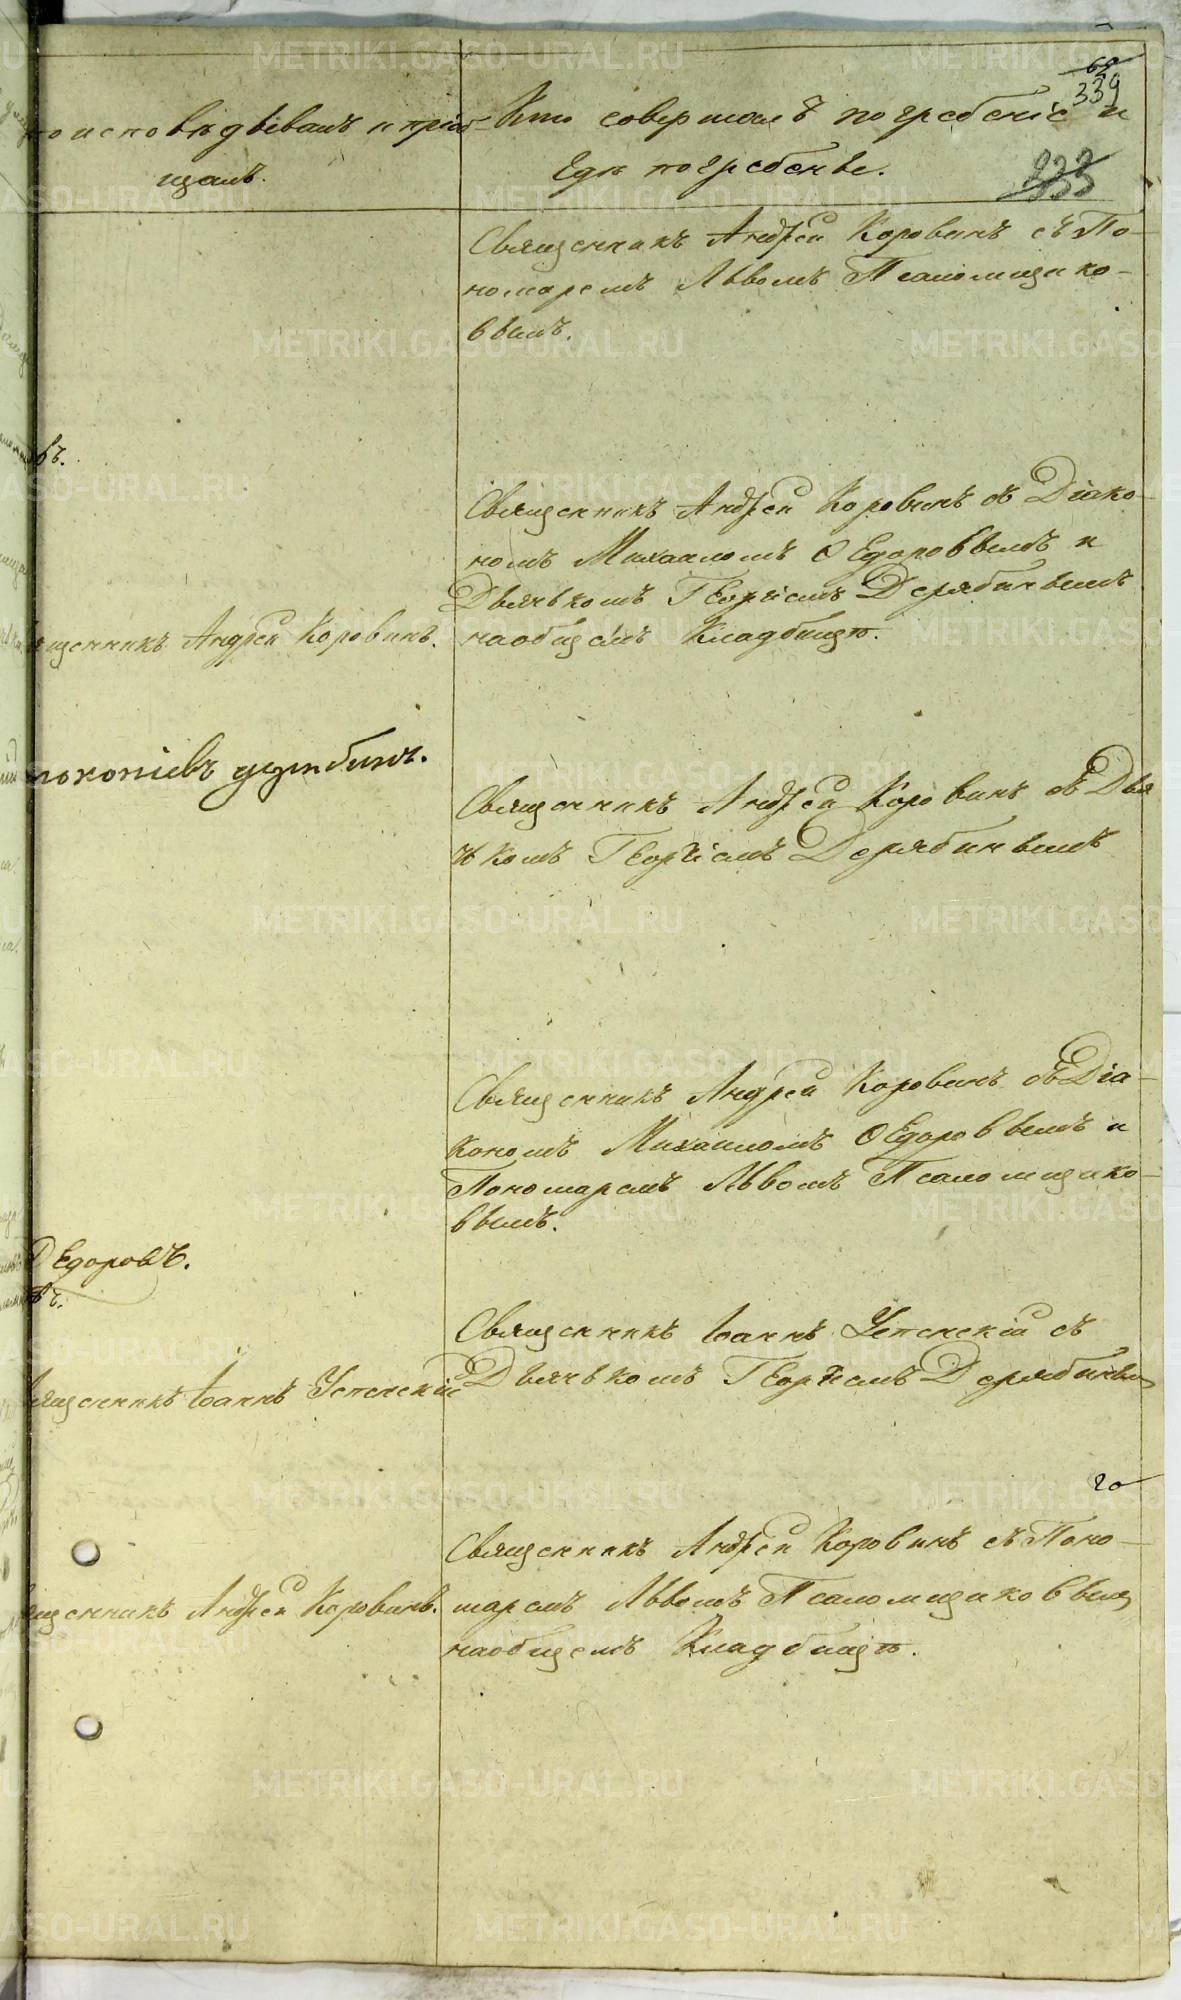 69
339
то исповѣдывалъ и пріоб-
щалъ.
Кто совершалъ погребеніе и
гдѣ погребены.
233
Священникъ Андрей Коровинъ съ По-
номаремъ Львомъ Псаломщико-
вымъ.
въ.
Священникъ Андрей Коровинъ съ Діако-
номъ Михаиломъ Ѳедоровымъ и
Дьячькомъ Георгіемъ Дерябинымъ
на общемъ Кладбищѣ.
ященникъ Андрей Коровинъ.
Священникъ Андрей Коровинъ съ Дья
чькомъ Георгіемъ Дерябинымъ
Священникъ Андрей Коровинъ съ Діа-
кономъ Михаиломъ Ѳедоровымъ и
Пономаремъ Львомъ Псаломщико-
вымъ.
Ѳедоровъ.
въ.
Священникъ Іоаннъ Успенскій съ
Дьячькомъ Георгіемъ Дерябинымъ
ященникъ Іоаннъ Успенскій
20
Священникъ Андрей Коровинъ съ Поно-
маремъ Львомъ Псаломщиковымъ
на общемъ Кладбищѣ.
ященникъ Андрей Коровинъ.
METRIKI.GASO-URAL.RU